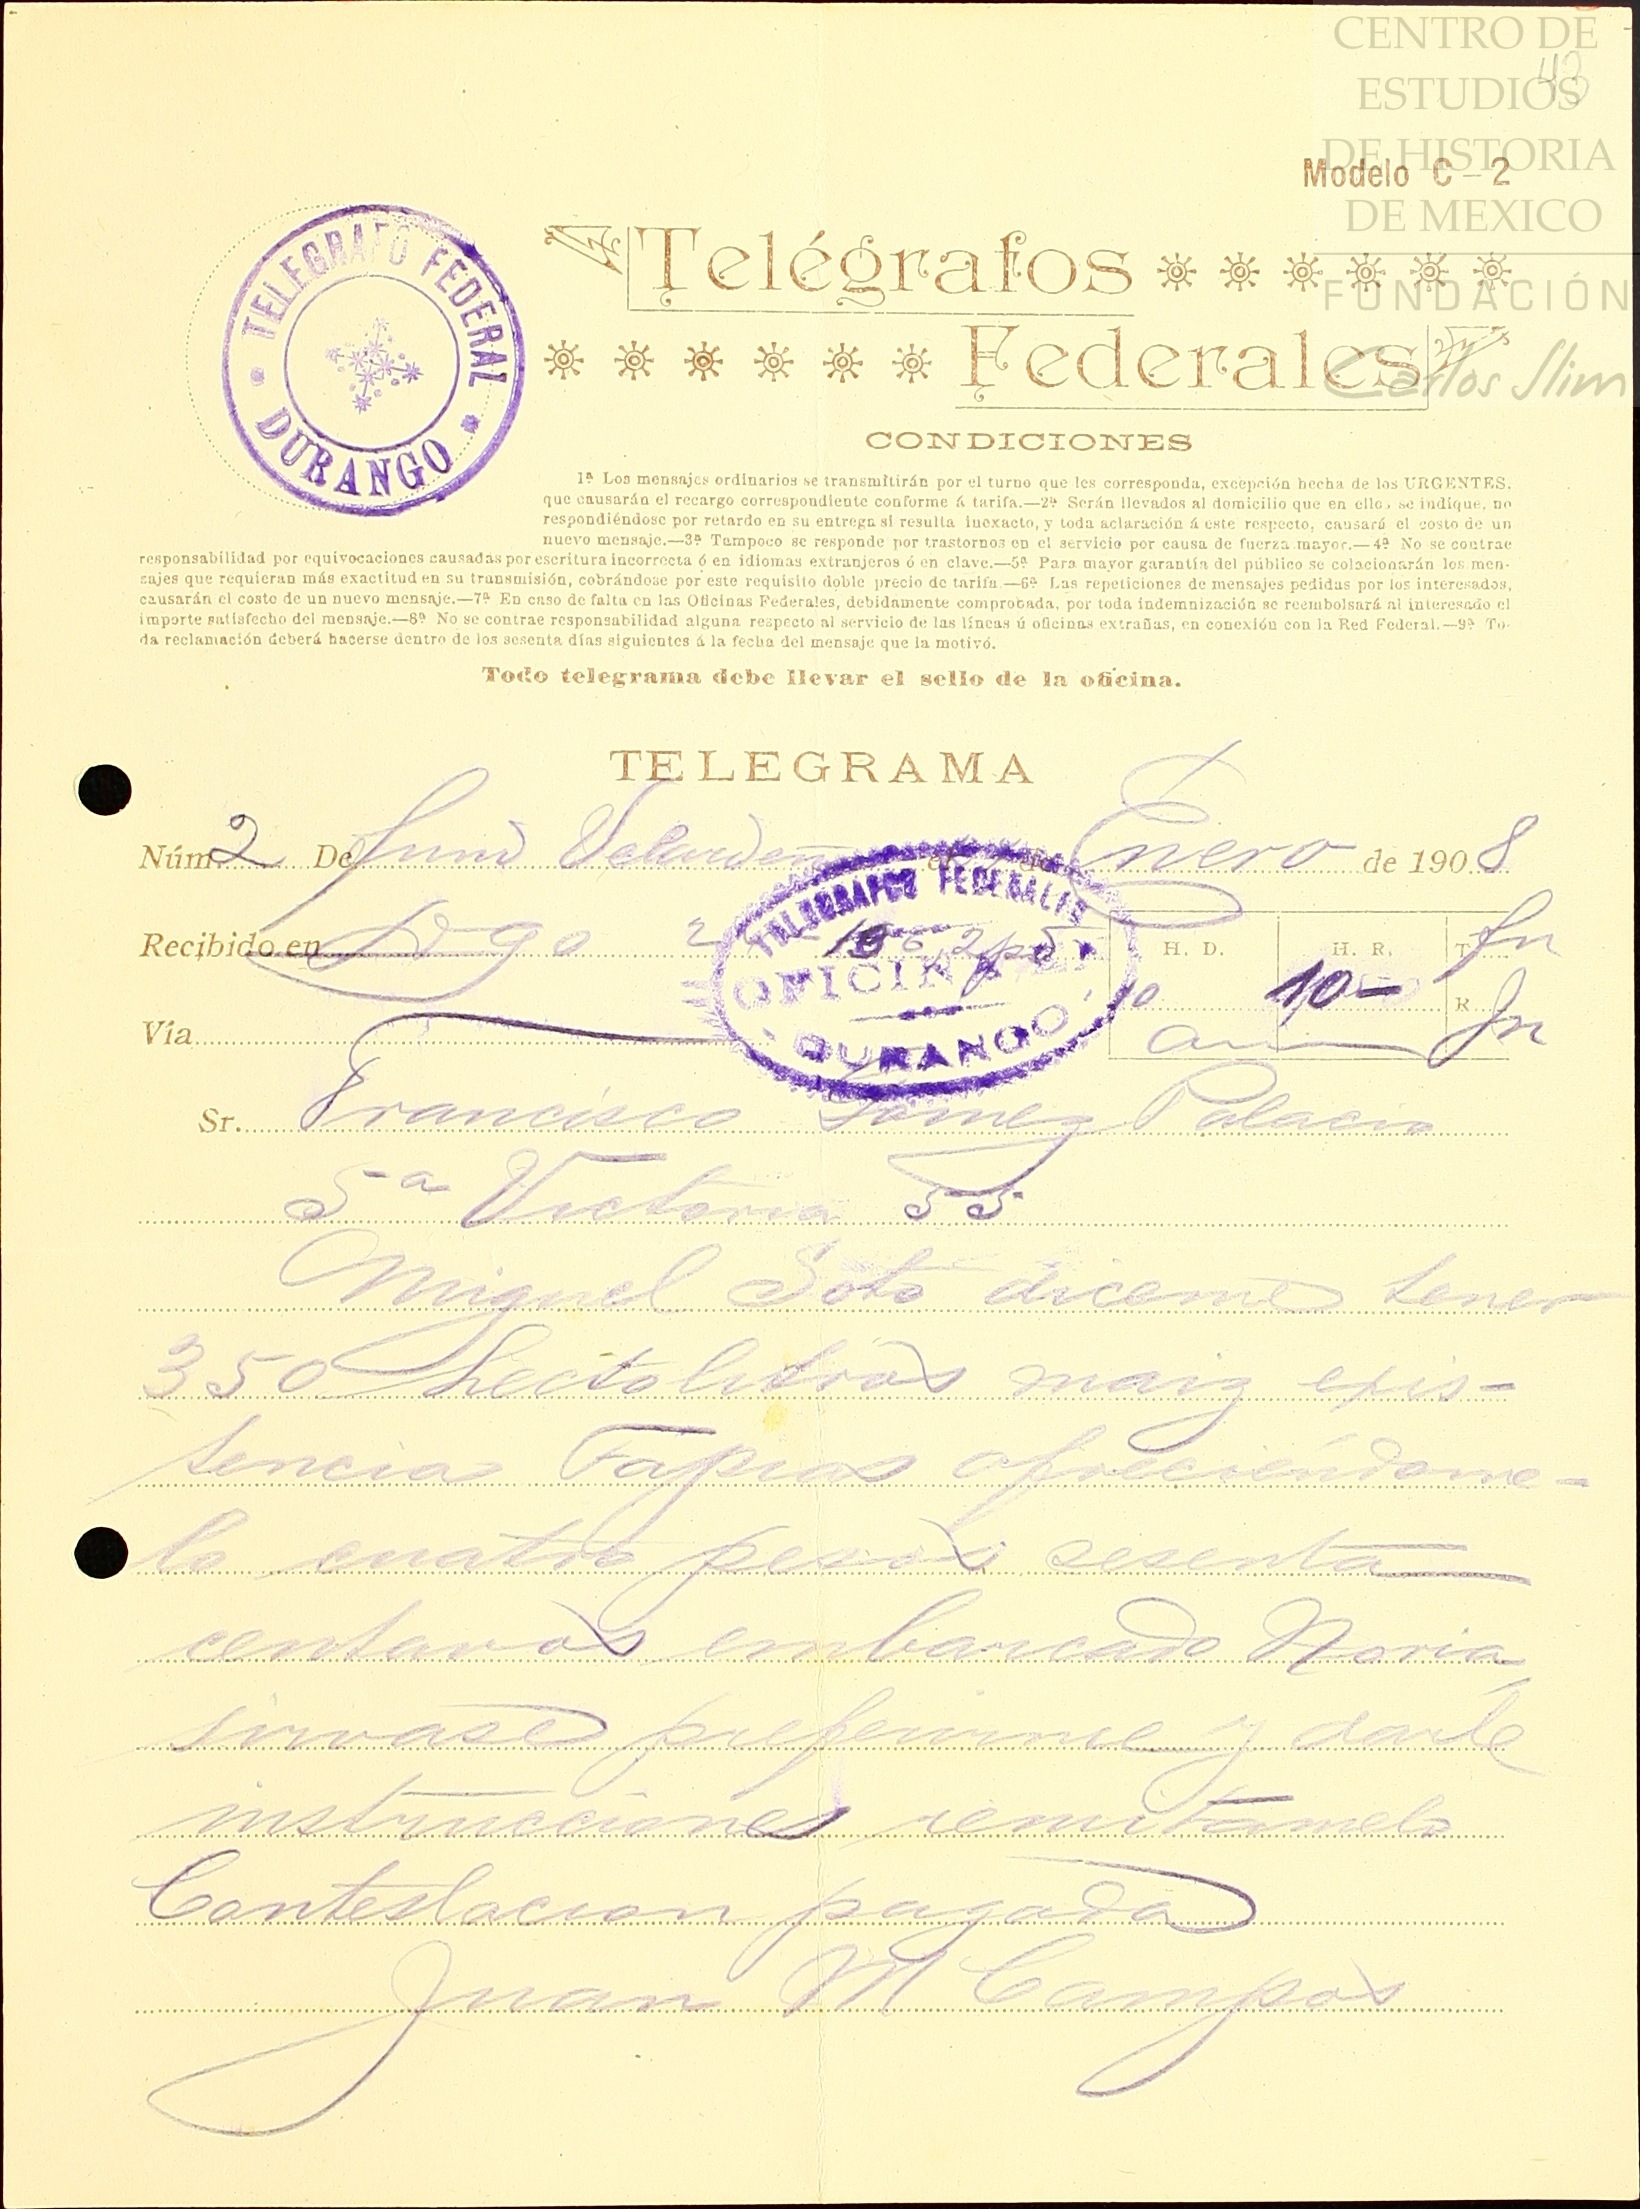 CENTRO DE
ESTUDIOS
DE HISTORIA
DE MEXICO
FUNDACIÓN
Carlos Slim
43
Modelo C-2
TELEGRAFO FEDERAL
DURANGO
Telégrafos
Federales
CONDICIONES
1ª Los mensajes ordinarios se transmitirán por el turno que les corresponda, excepción hecha de los URGENTES,
que causarán el recargo correspondiente conforme á tarifa.—2ª Serán llevados al domicilio que en ellos se indique, no
respondiéndose por retardo en su entrega si resulta inexacto, y toda aclaración á este respecto, causará el costo de un
nuevo mensaje.—3ª Tampoco se responde por trastornos en el servicio por causa de fuerza mayor.—4ª No se contrae
responsabilidad por equivocaciones causadas por escritura incorrecta ó en idiomas extranjeros ó en clave.—5ª Para mayor garantía del público se colacionarán los men-
sajes que requieran más exactitud en su transmisión, cobrándose por este requisito doble precio de tarifa.—6ª Las repeticiones de mensajes pedidas por los interesados,
causarán el costo de un nuevo mensaje.—7ª En caso de falta en las Oficinas Federales, debidamente comprobada, por toda indemnización se reembolsará al interesado el
importe satisfecho del mensaje.—8ª No se contrae responsabilidad alguna respecto al servicio de las líneas ú oficinas extrañas, en conexión con la Red Federal.—9ª To-
da reclamación deberá hacerse dentro de los sesenta días siguientes á la fecha del mensaje que la motivó.
Todo telegrama debe llevar el sello de la oficina.
TELEGRAMA
Núm. 2 De Velardeña el de Enero de 1908
Recibido en Dgo 2
H. D. H. R. T.
10 10 R.
TELEGRAFOS FEDERALES
OFICINA
DURANGO
Vía
Sr. Francisco Gómez Palacio
5ª Victoria 55
Miguel Soto diceme tener
350 hectolitros maiz exis-
tencia Tapias ofreciéndome-
lo cuatro pesos sesenta
centavos embarcado Noria,
sirvase preferirme y darle
instrucciones remitamelo
Contestacion pagada
Juan M Campos